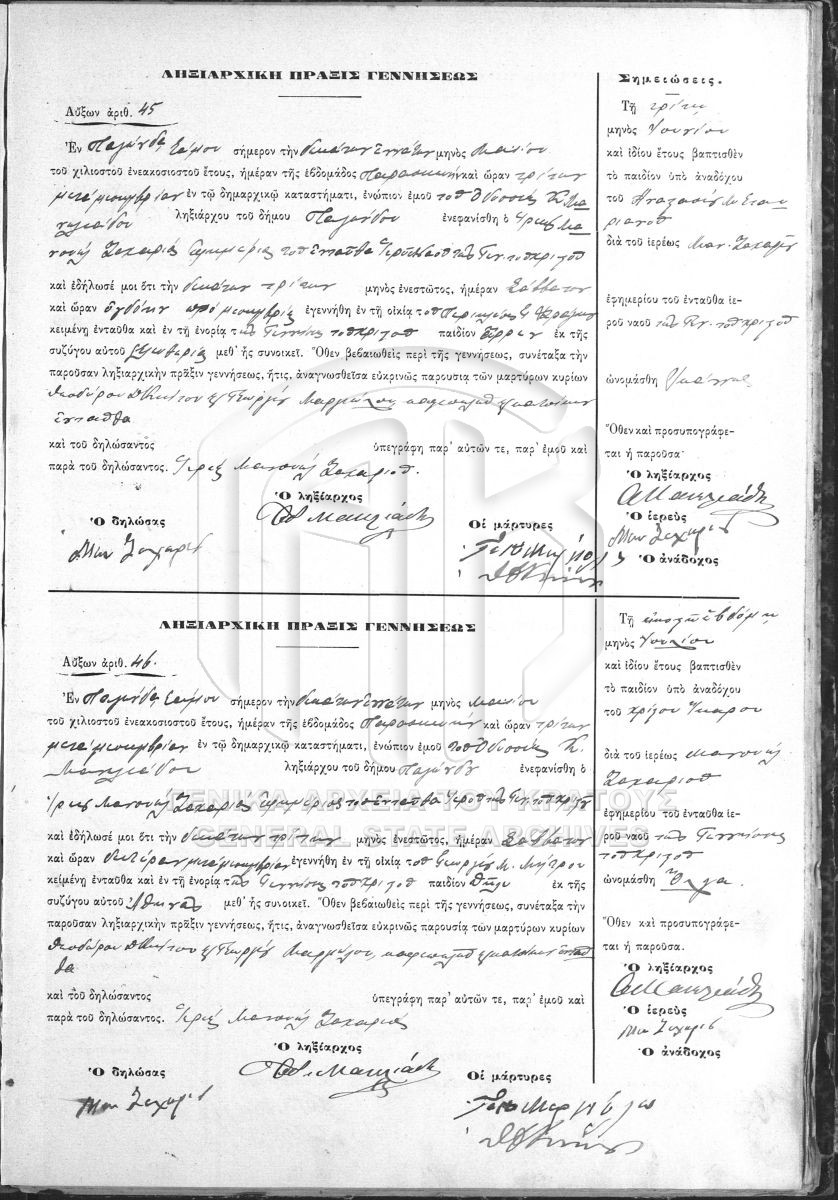 ΛΗΞΙΑΡΧΙΚΗ ΠΡΑΞΙΣ ΓΕΝΝΗΣΕΩΣ
Αὔξων ἀριθ. 45
Ἐν Παγώνδᾳ Σάμου σήμερον τὴν δεκάτην ἐννάτην μηνὸς Μαΐου
τοῦ χιλιοστοῦ ἐνεακοσιοστοῦ ἔτους, ἡμέραν τῆς ἑβδομάδος Παρασκευὴν καὶ ὥραν τρίτην
μεταμεσημβρίαν ἐν τῷ δημαρχικῷ καταστήματι, ἐνώπιον ἐμοῦ τοῦ Ὀδυσσέως Κ.
ληξιάρχου τοῦ δήμου Παγώνδου ἐνεφανίσθη ὁ Ἱερεὺς Μα
νουὴλ Ζαχαρίας ἐφημέριος τοῦ ἐνταῦθα Ἱεροῦ Ναοῦ τῆς Γεν. τοῦ Χριστοῦ
καὶ ἐδήλωσέ μοι ὅτι τὴν δεκάτην τρίτην μηνὸς ἐνεστῶτος, ἡμέραν Σάββατον
καὶ ὥραν ὀγδόην πρὸ μεσημβρίας ἐγεννήθη ἐν τῇ οἰκίᾳ τοῦ Περικλέους
κειμένῃ ἐνταῦθα καὶ ἐν τῇ ἐνορίᾳ τῆς Γεννήσεως τοῦ Χριστοῦ παιδίον ἄρρεν ἐκ τῆς
συζύγου αὐτοῦ μεθ' ἧς συνοικεῖ. Ὅθεν βεβαιωθεὶς περὶ τῆς γεννήσεως, συνέταξα τὴν
παροῦσαν ληξιαρχικὴν πρᾶξιν γεννήσεως, ἥτις, ἀναγνωσθεῖσα εὐκρινῶς παρουσίᾳ τῶν μαρτύρων κυρίων
Θεοδώρου Γεωργίου
ἐνταῦθα
καὶ τοῦ δηλώσαντος ὑπεγράφη παρ' αὐτῶν τε, παρ' ἐμοῦ καὶ
παρὰ τοῦ δηλώσαντος. Ἱερεὺς Μανουὴλ Ζαχαρίου
Ὁ ληξίαρχος
Ὁ δηλώσας
Οἱ μάρτυρες
Μαν Ζαχαρίου
Σημειώσεις.
Τῇ τρίτῃ
μηνὸς Ἰουνίου
καὶ ἰδίου ἔτους βαπτισθὲν
τὸ παιδίον ὑπὸ ἀναδόχου
τοῦ
διὰ τοῦ ἱερέως Μαν. Ζαχαρίου
ἐφημερίου τοῦ ἐνταῦθα ἱε-
ροῦ ναοῦ τῆς Γεν. τοῦ Χριστοῦ
ὠνομάσθη
Ὅθεν καὶ προσυπογράφε-
ται ἡ παροῦσα·
Ὁ ληξίαρχος
Ὁ ἱερεὺς
Μαν Ζαχαρίου
Ὁ ἀνάδοχος
ΛΗΞΙΑΡΧΙΚΗ ΠΡΑΞΙΣ ΓΕΝΝΗΣΕΩΣ
Αὔξων ἀριθ. 46.
Ἐν Παγώνδᾳ Σάμου σήμερον τὴν δεκάτην ἐννάτην μηνὸς Μαΐου
τοῦ χιλιοστοῦ ἐνεακοσιοστοῦ ἔτους, ἡμέραν τῆς ἑβδομάδος Παρασκευὴν καὶ ὥραν τρίτην
μεταμεσημβρίαν ἐν τῷ δημαρχικῷ καταστήματι, ἐνώπιον ἐμοῦ τοῦ Ὀδυσσέως Κ.
ληξιάρχου τοῦ δήμου Παγώνδου ἐνεφανίσθη ὁ
Ἱερεὺς Μανουὴλ Ζαχαρίας ἐφημέριος τοῦ ἐνταῦθα Ἱεροῦ τῆς Γεν. τοῦ Χριστοῦ
καὶ ἐδήλωσέ μοι ὅτι τὴν δεκάτην τρίτην μηνὸς ἐνεστῶτος, ἡμέραν Σάββατον
καὶ ὥραν δευτέραν μεταμεσημβρίαν ἐγεννήθη ἐν τῇ οἰκίᾳ τοῦ Γεωργίου Μ.
κειμένῃ ἐνταῦθα καὶ ἐν τῇ ἐνορίᾳ τῆς Γεννήσεως τοῦ Χριστοῦ παιδίον θῆλυ ἐκ τῆς
συζύγου αὐτοῦ Ἀθηνᾶς μεθ' ἧς συνοικεῖ. Ὅθεν βεβαιωθεὶς περὶ τῆς γεννήσεως, συνέταξα τὴν
παροῦσαν ληξιαρχικὴν πρᾶξιν γεννήσεως, ἥτις, ἀναγνωσθεῖσα εὐκρινῶς παρουσίᾳ τῶν μαρτύρων κυρίων
Θεοδώρου Γεωργίου ἐνταῦ
θα
καὶ τοῦ δηλώσαντος ὑπεγράφη παρ' αὐτῶν τε, παρ' ἐμοῦ καὶ
παρὰ τοῦ δηλώσαντος. Ἱερεὺς Μανουὴλ Ζαχαρίας
Ὁ ληξίαρχος
Ὁ δηλώσας
Οἱ μάρτυρες
Μαν Ζαχαρίου
Τῇ εἰκοστῇ ἑβδόμῃ
μηνὸς Ἰουλίου
καὶ ἰδίου ἔτους βαπτισθὲν
τὸ παιδίον ὑπὸ ἀναδόχου
τοῦ Χρήστου
διὰ τοῦ ἱερέως Μανουὴλ
Ζαχαρίου
ἐφημερίου τοῦ ἐνταῦθα ἱε-
ροῦ ναοῦ τῆς Γεννήσεως
τοῦ Χριστοῦ
ὠνομάσθη Ὄλγα.
Ὅθεν καὶ προσυπογράφε-
ται ἡ παροῦσα.
Ὁ ληξίαρχος
Ὁ ἱερεὺς
Μαν Ζαχαρίου
Ὁ ἀνάδοχος
ΓΕΝΙΚΑ ΑΡΧΕΙΑ ΤΟΥ ΚΡΑΤΟΥΣ
GENERAL STATE ARCHIVES